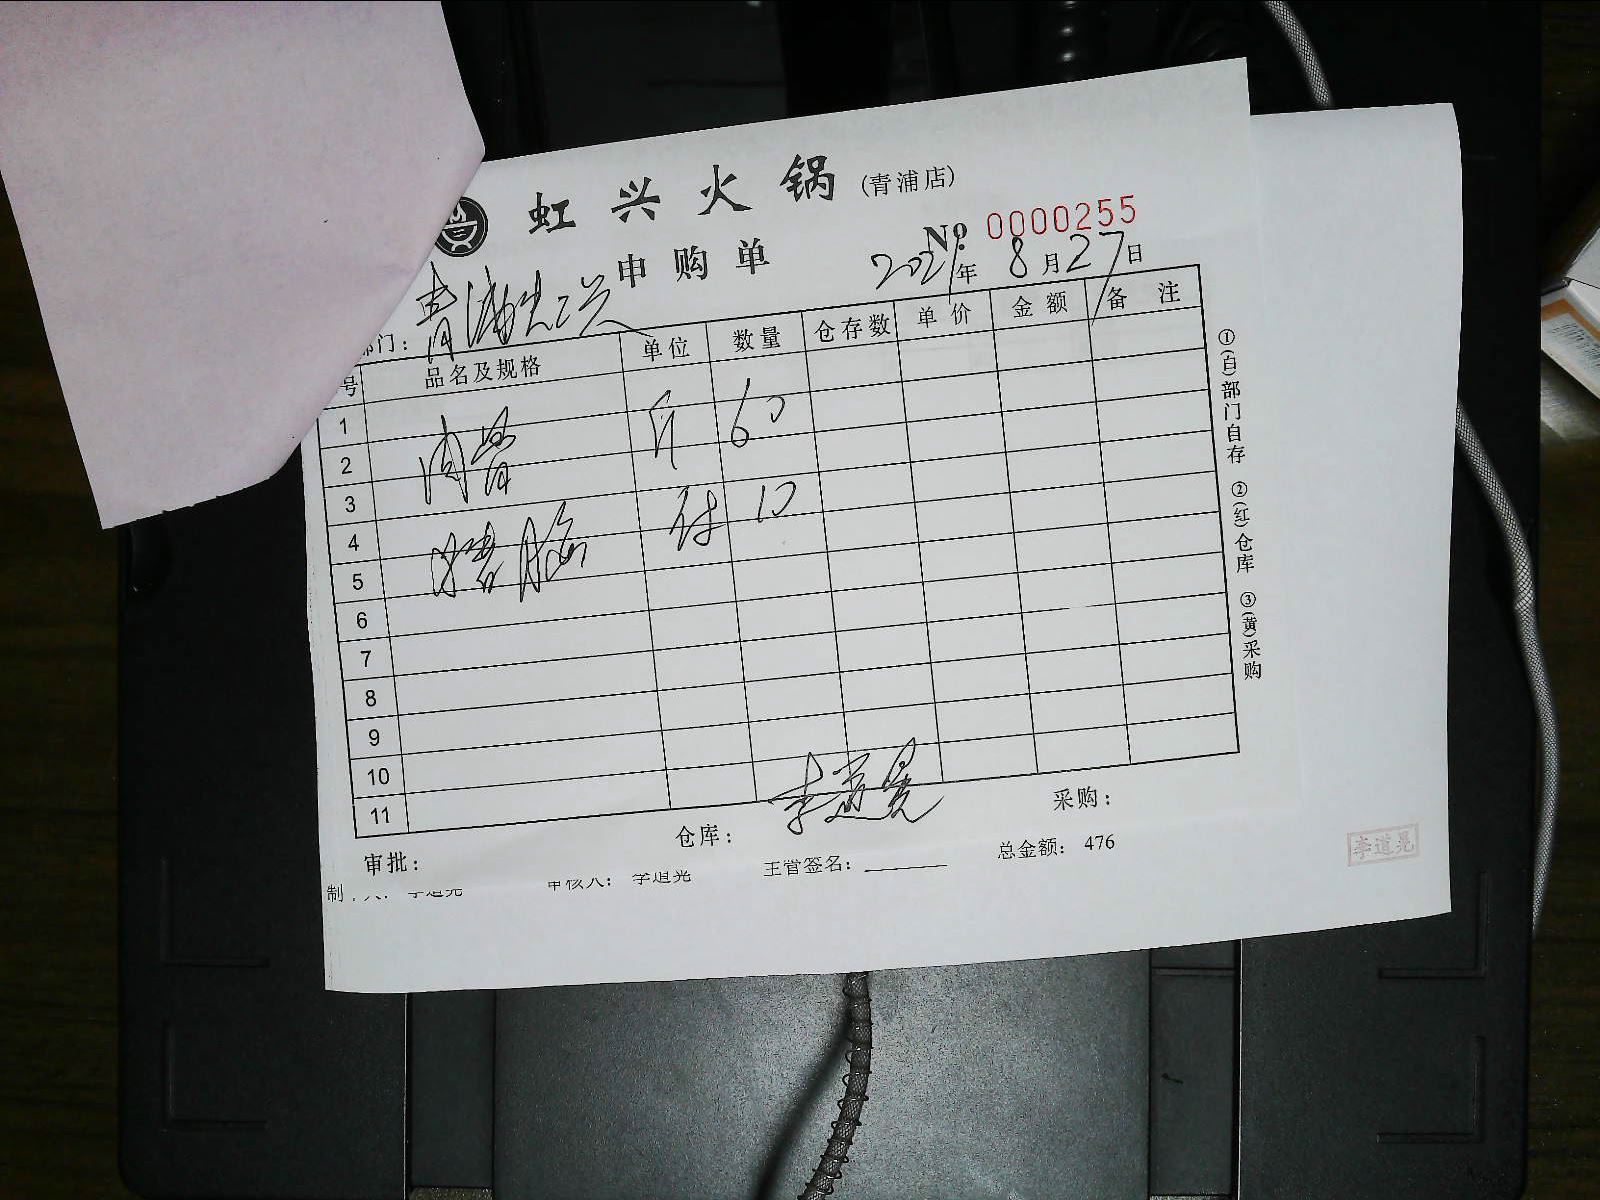 虹兴火锅(青浦店)
申购单
No 0000255
2021年8月27日
部门：青浦
号 品名及规格 单位 数量 仓存数 单价 金额 备注
1
2 肉 斤 60
3
4 猪脑 付 10
5
6
7
8
9
10
11
①(白)部门自存 ②(红)仓库 ③(黄)采购
审批： 仓库： 李道晃 采购：
制 人： 李道晃 审核人： 李道晃 主管签名： 总金额： 476
李道晃